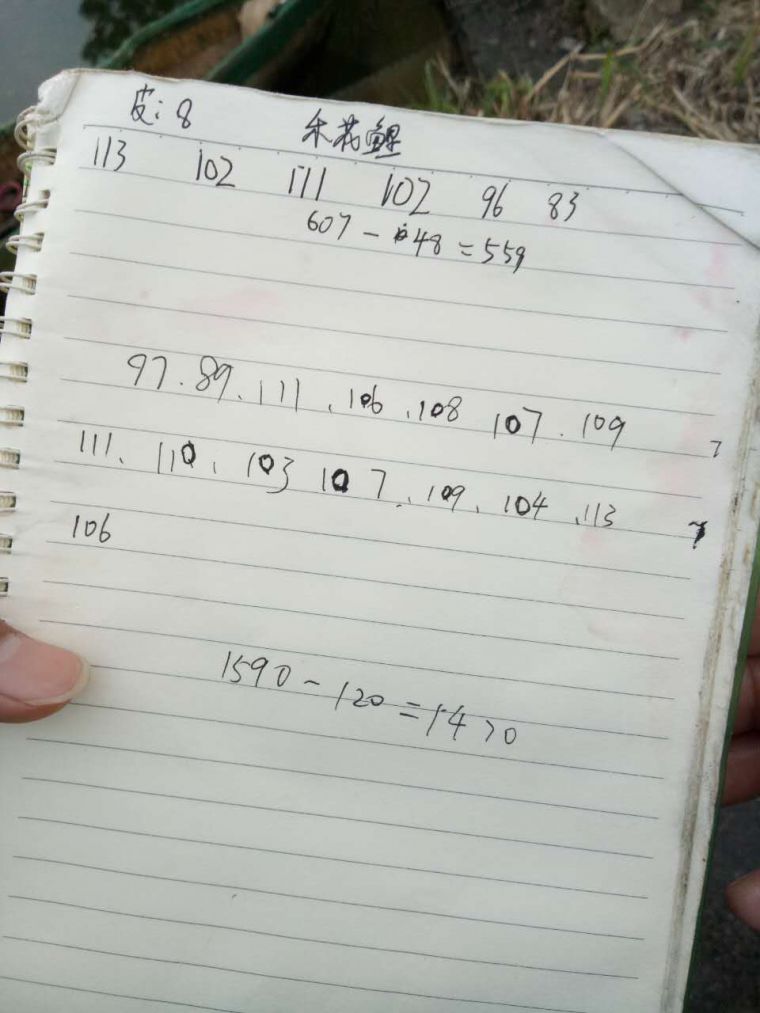 皮:8 禾花鲤
113 102 111 102 96 83
607-48=559
97.89、111、106、108 107.109
111、110、103 107、109、104、113
106
1590-120=1470